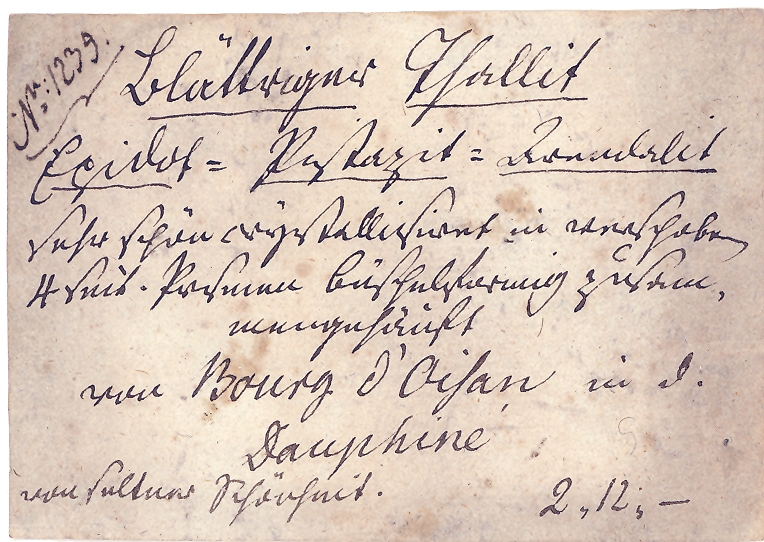 Nr: 1239.
Blättriger Thallit
Epidot = Pistazit = Arendalit
Sehr schön crÿstallisiret in verschoben
4 seit. Prismen büschelförmig zusam,
mengehäuft
von Bourg d'Oisan in d.
Dauphiné
von seltner Schönheit.
2„12„—